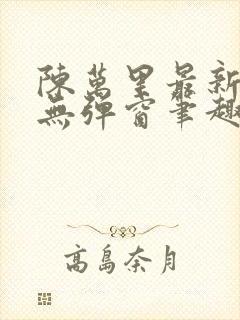 陳萬里最新
無彈窗筆趣
高島奈月